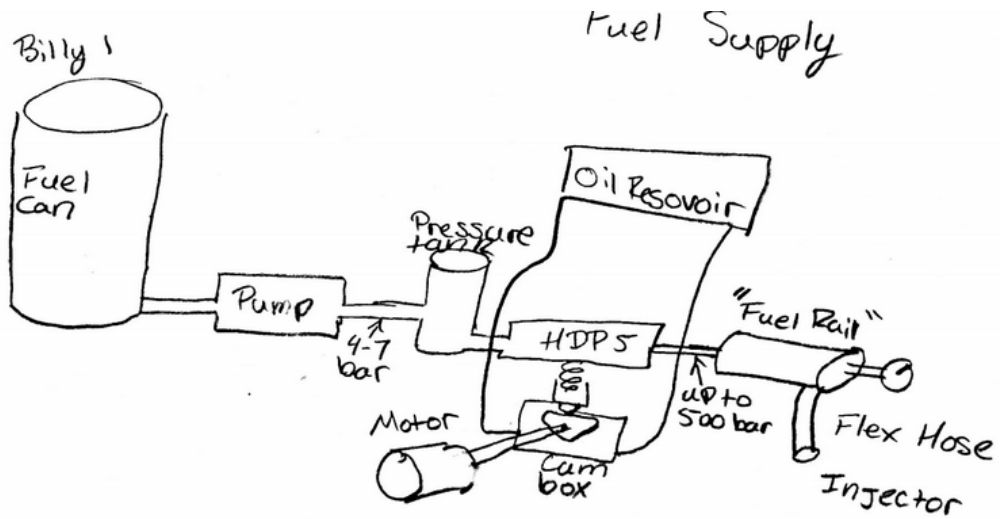 Fuel Supply
Billy 1
Fuel
Can
Oil Resovoir
Pressure
tank
Pump
4-7
bar
HDP5
"Fuel Rail"
up to
500 bar
Motor
Cam
box
Flex Hose
Injector